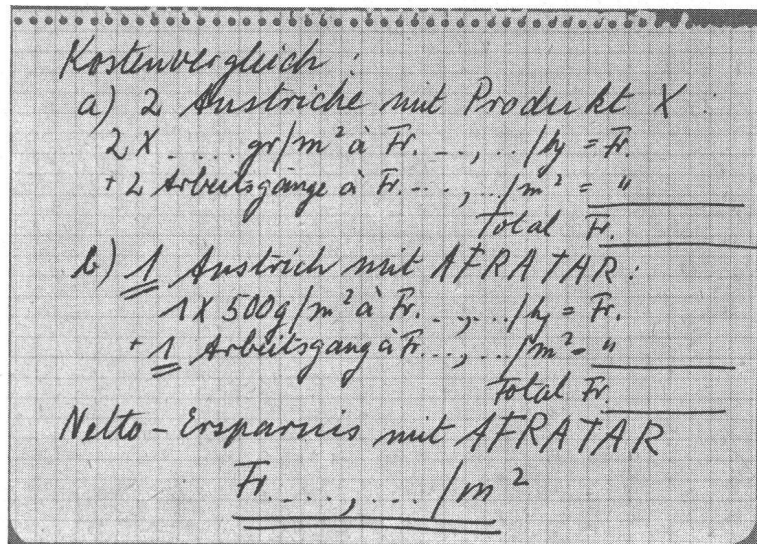 Kostenvergleich:
a) 2 Anstriche mit Produkt X:
2 X ..... gr/m² à Fr. ...,../kg = Fr.
+ 2 Arbeitsgänge à Fr. ...,.../m² = "
Total Fr.
b) 1 Anstrich mit AFRATAR:
1 X 500g/m² à Fr. ...,.../kg = Fr.
+ 1 Arbeitsgang à Fr. ...,.../m² = "
Total Fr.
Netto-Ersparnis mit AFRATAR
Fr. ....,.../m²